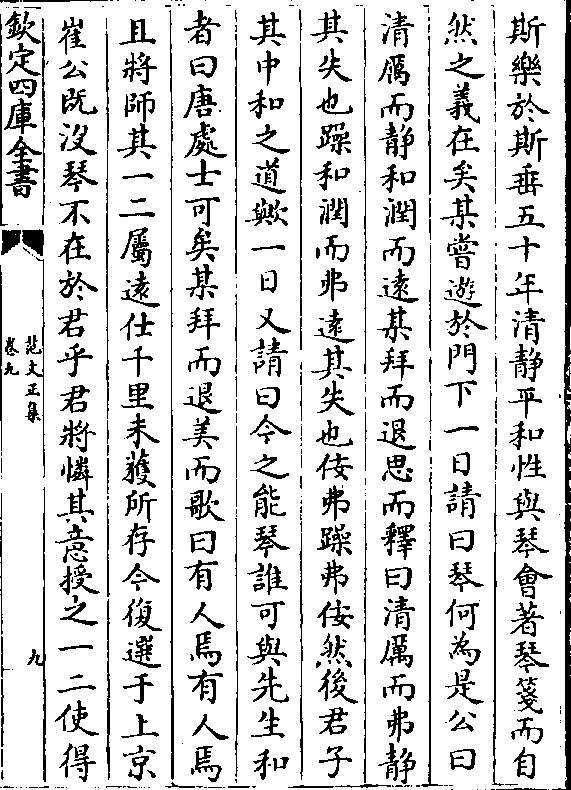 斯樂於斯垂五十年清静平和性與琴會著琴箋而自
然之義在矣某嘗遊於門下一日請曰琴何為是公曰
清厲而静和潤而遠某拜而退思而釋曰清厲而弗静
其失也躁和潤而弗遠其失也佞弗躁弗佞然後君子
其中和之道歟一日又請曰今之能琴誰可與先生和
者曰唐處士可矣某拜而退美而歌曰有人焉有人焉
且將師其一二屬逺仕千里未獲所存今復選于上京
崔公既沒琴不在於君乎君將憐其意授之一二使得
欽定四庫全書
范文正集
卷九
九